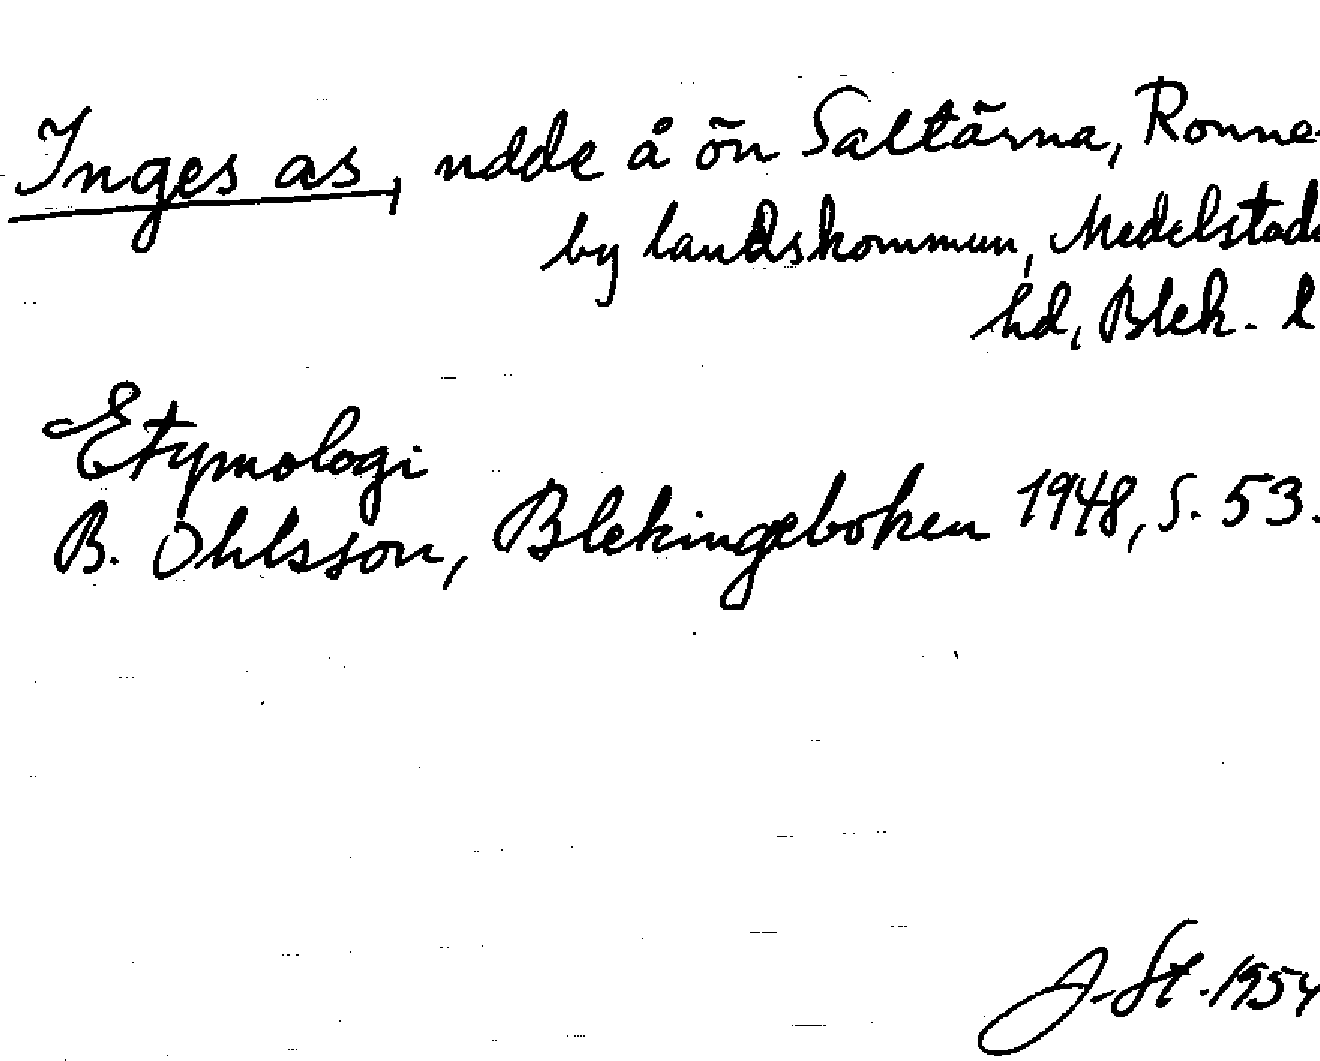 Inges as, udde å ön Saltärna, Ronne-
by landskommun, Medelstads
hd, Blek. l
Etymologi
B. Ohlsson, Blekingeboken 1948, s. 53.
J. St. 1954